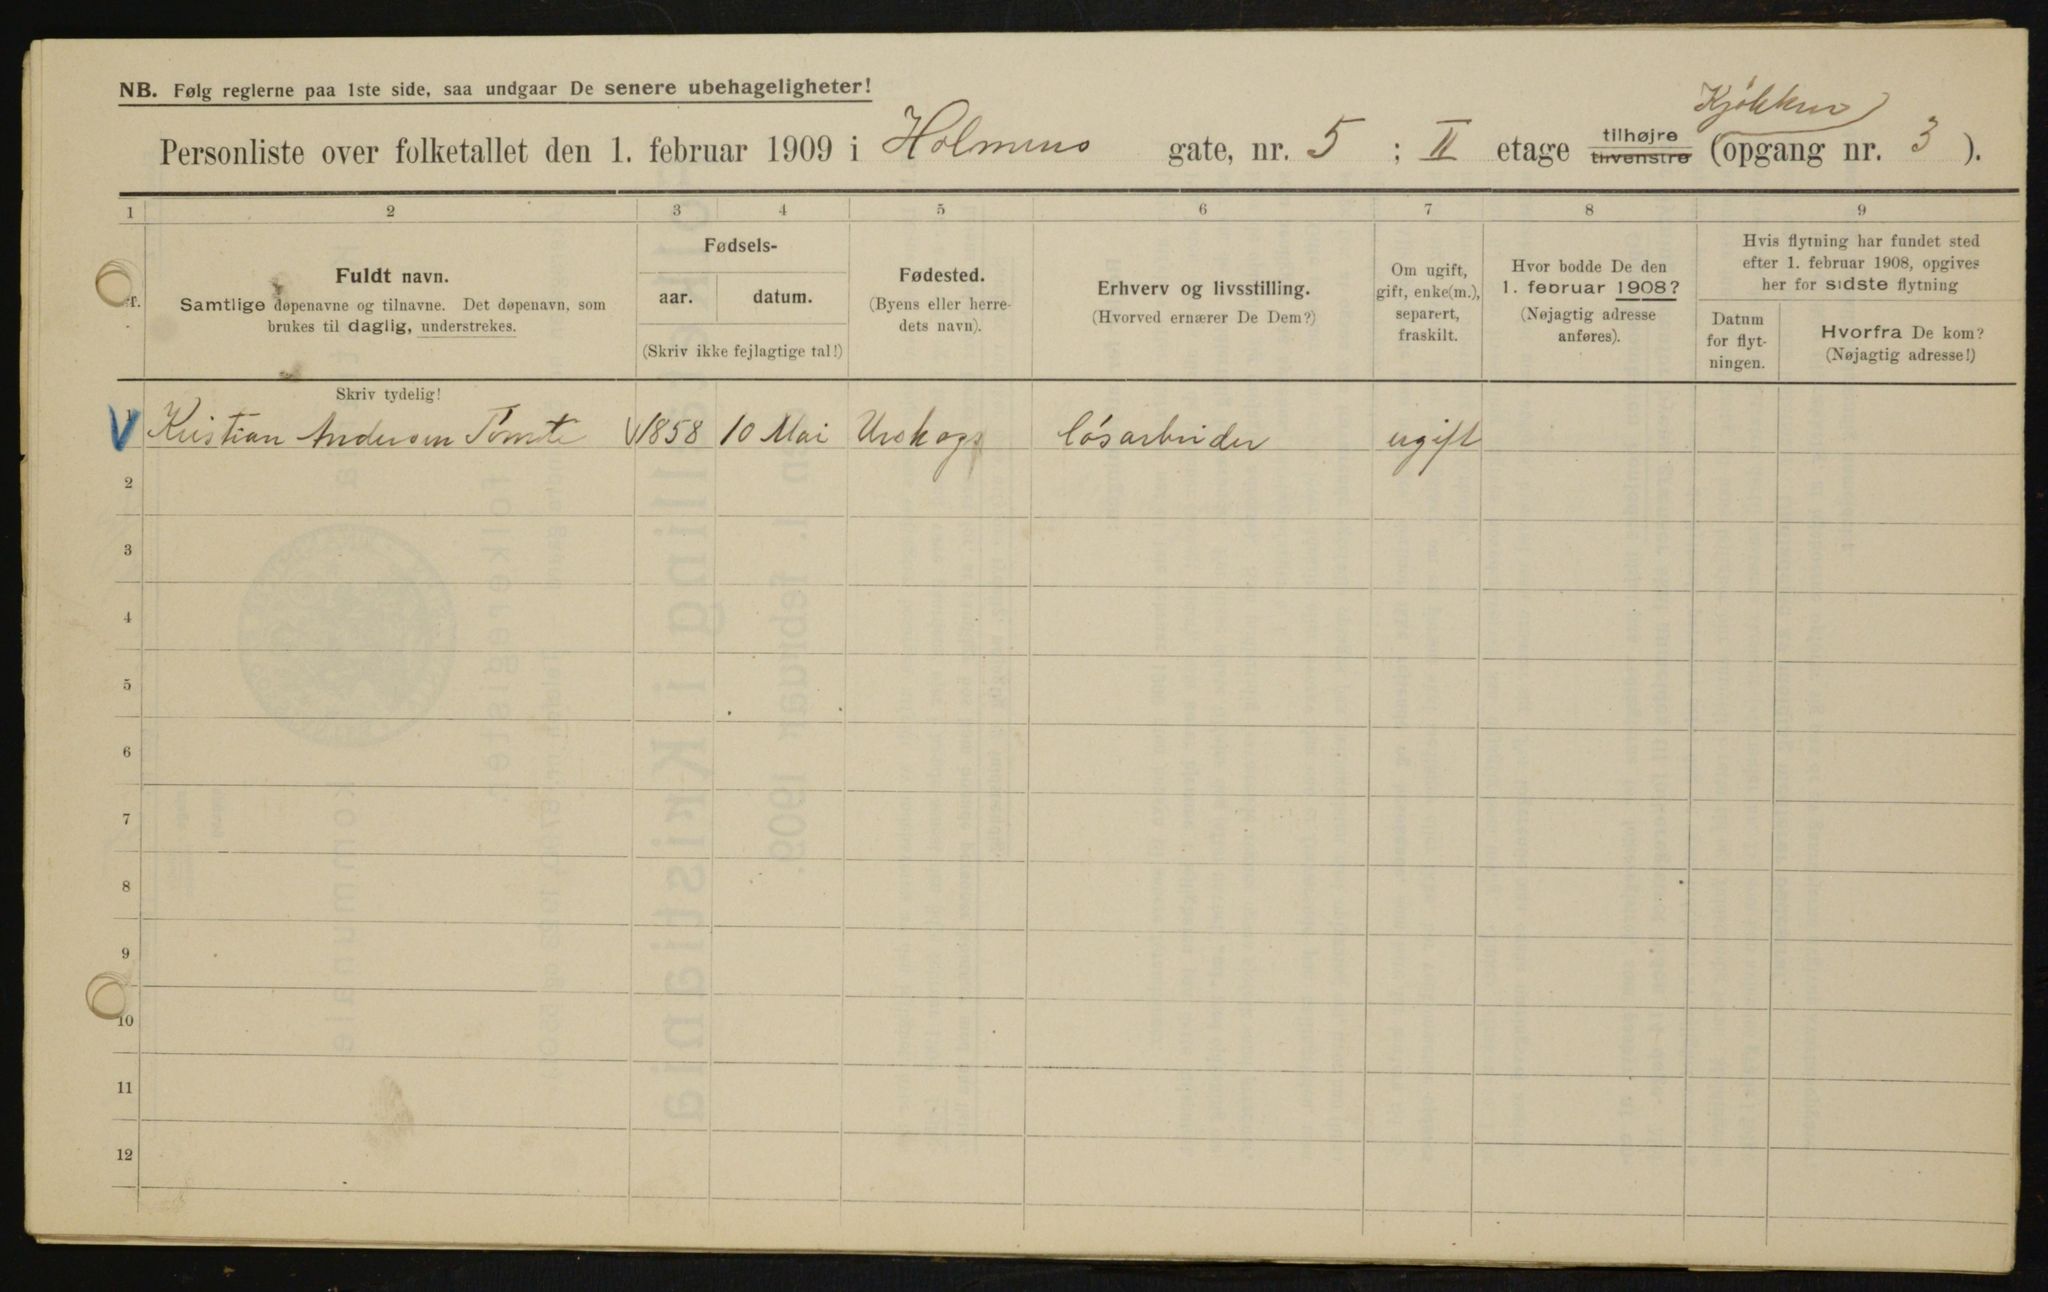 NB. Følg reglerne paa 1ste side, saa undgaar De senere ubehageligheter!
Kjøkken
Personliste over folketallet den 1. februar 1909 i Holmens gate, nr. 5 ; II etage tilhøjre tilvenstre (opgang nr. 3 ).
1 2 3 4 5 6 7 8 9
Fuldt navn.
Samtlige døpenavne og tilnavne. Det døpenavn, som
brukes til daglig, understrekes.
Fødsels-
aar. datum.
(Skriv ikke fejlagtige tal!)
Fødested.
(Byens eller herre-
dets navn).
Erhverv og livsstilling.
(Hvorved ernærer De Dem?)
Om ugift,
gift, enke(m.),
separert,
fraskilt.
Hvor bodde De den
1. februar 1908?
(Nøjagtig adresse
anføres).
Hvis flytning har fundet sted
efter 1. februar 1908, opgives
her for sidste flytning
Datum
for flyt-
ningen.
Hvorfra De kom?
(Nøjagtig adresse!)
Skriv tydelig!
Kristian Andersen Tømte 1858 10 Mai Urskog løsarbeider ugift
2
3
4
5
6
7
8
9
10
11
12